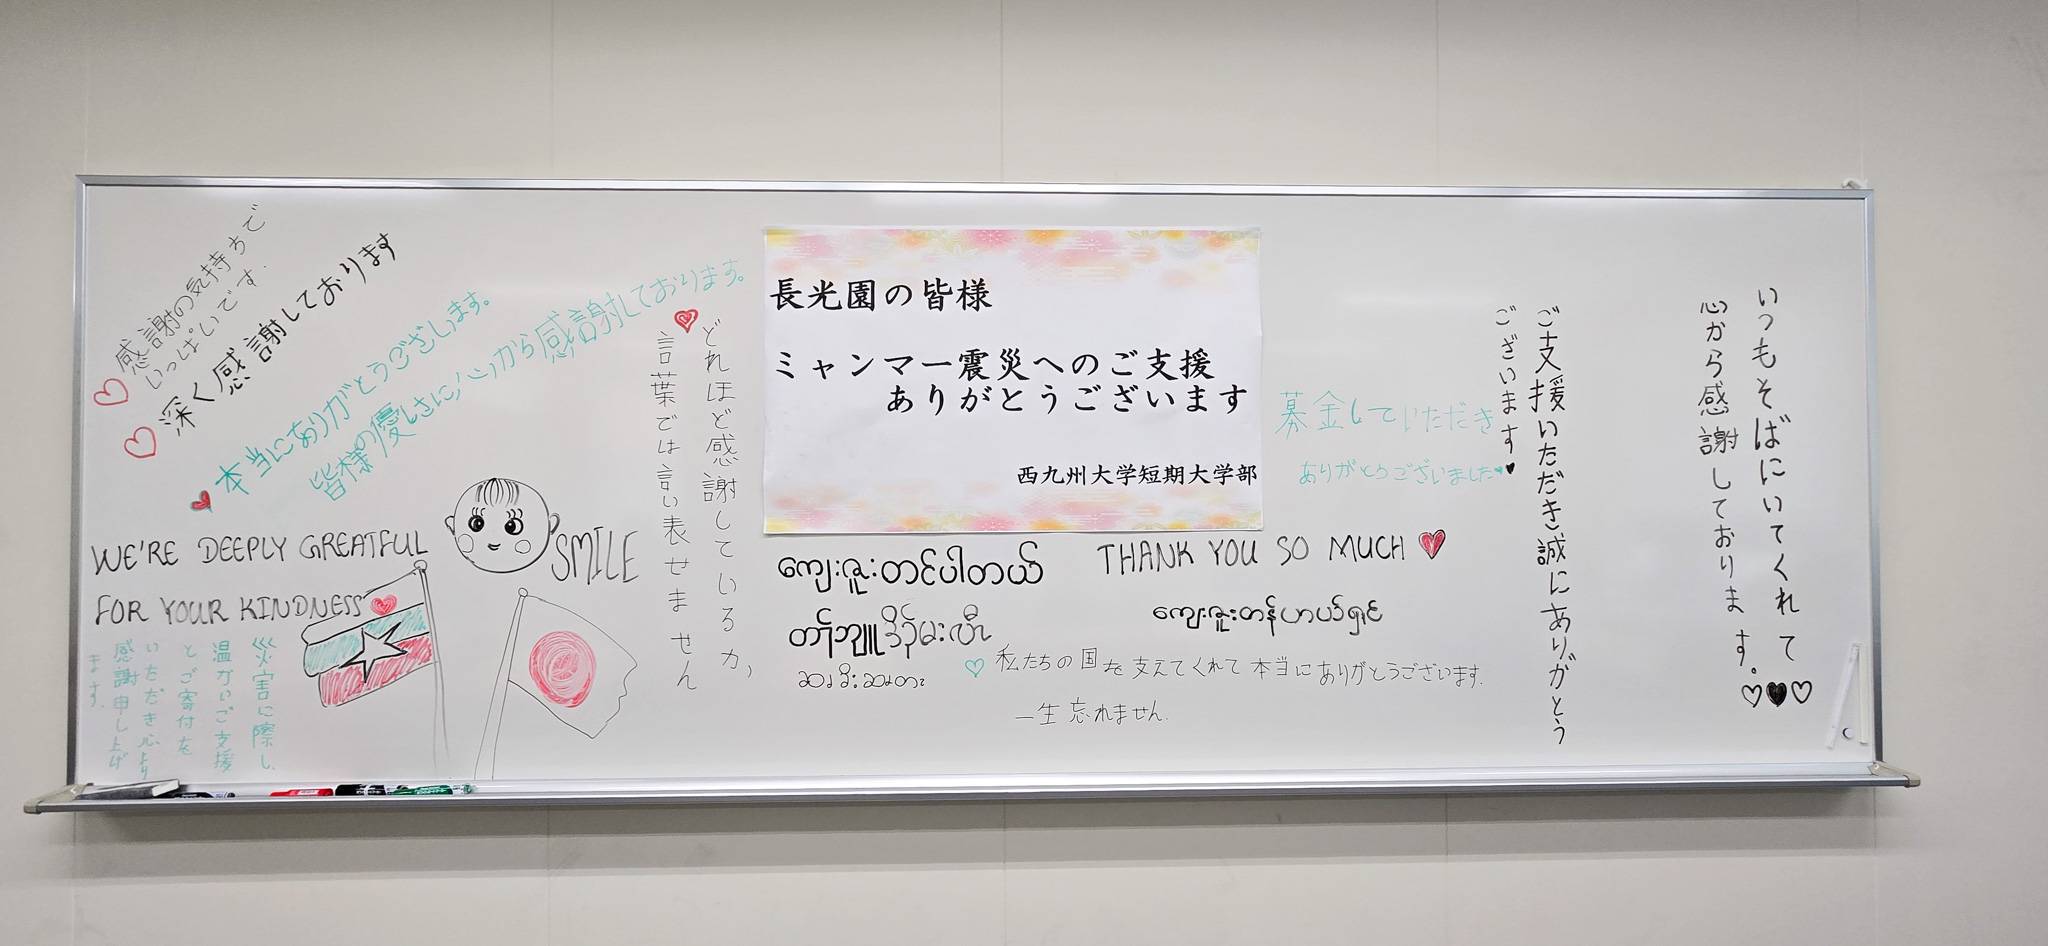 感謝の気持ちで
いっぱいです.
深く感謝しております
本当にありがとうございます。
皆様の優しさに心から感謝しております。
WE'RE DEEPLY GREATFUL
FOR YOUR KINDNESS
SMILE
災害に際し、
温かいご支援
とご寄付を
いただき心より
感謝申し上げ
ます。
どれほど感謝しているか、
言葉では言い表せません
長光園の皆様
ミャンマー震災へのご支援
ありがとうございます
西九州大学短期大学部
ကျေးဇူးတင်ပါတယ်
THANK YOU SO MUCH
ကျေးဇူးတန်ဟာယ်ရှင်
私たちの国を支えてくれて本当にありがとうございます.
一生忘れません.
募金していただき
ありがとうございました
ご支援いただき誠にありがとう
ございます
いつもそばにいてくれて
心から感謝しております。